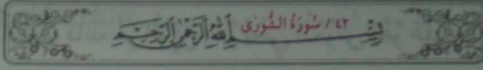 ٤٢ / سُورَةُ الشُّورَى
بِسْمِ اللَّهِ الرَّحْمَٰنِ الرَّحِيمِ